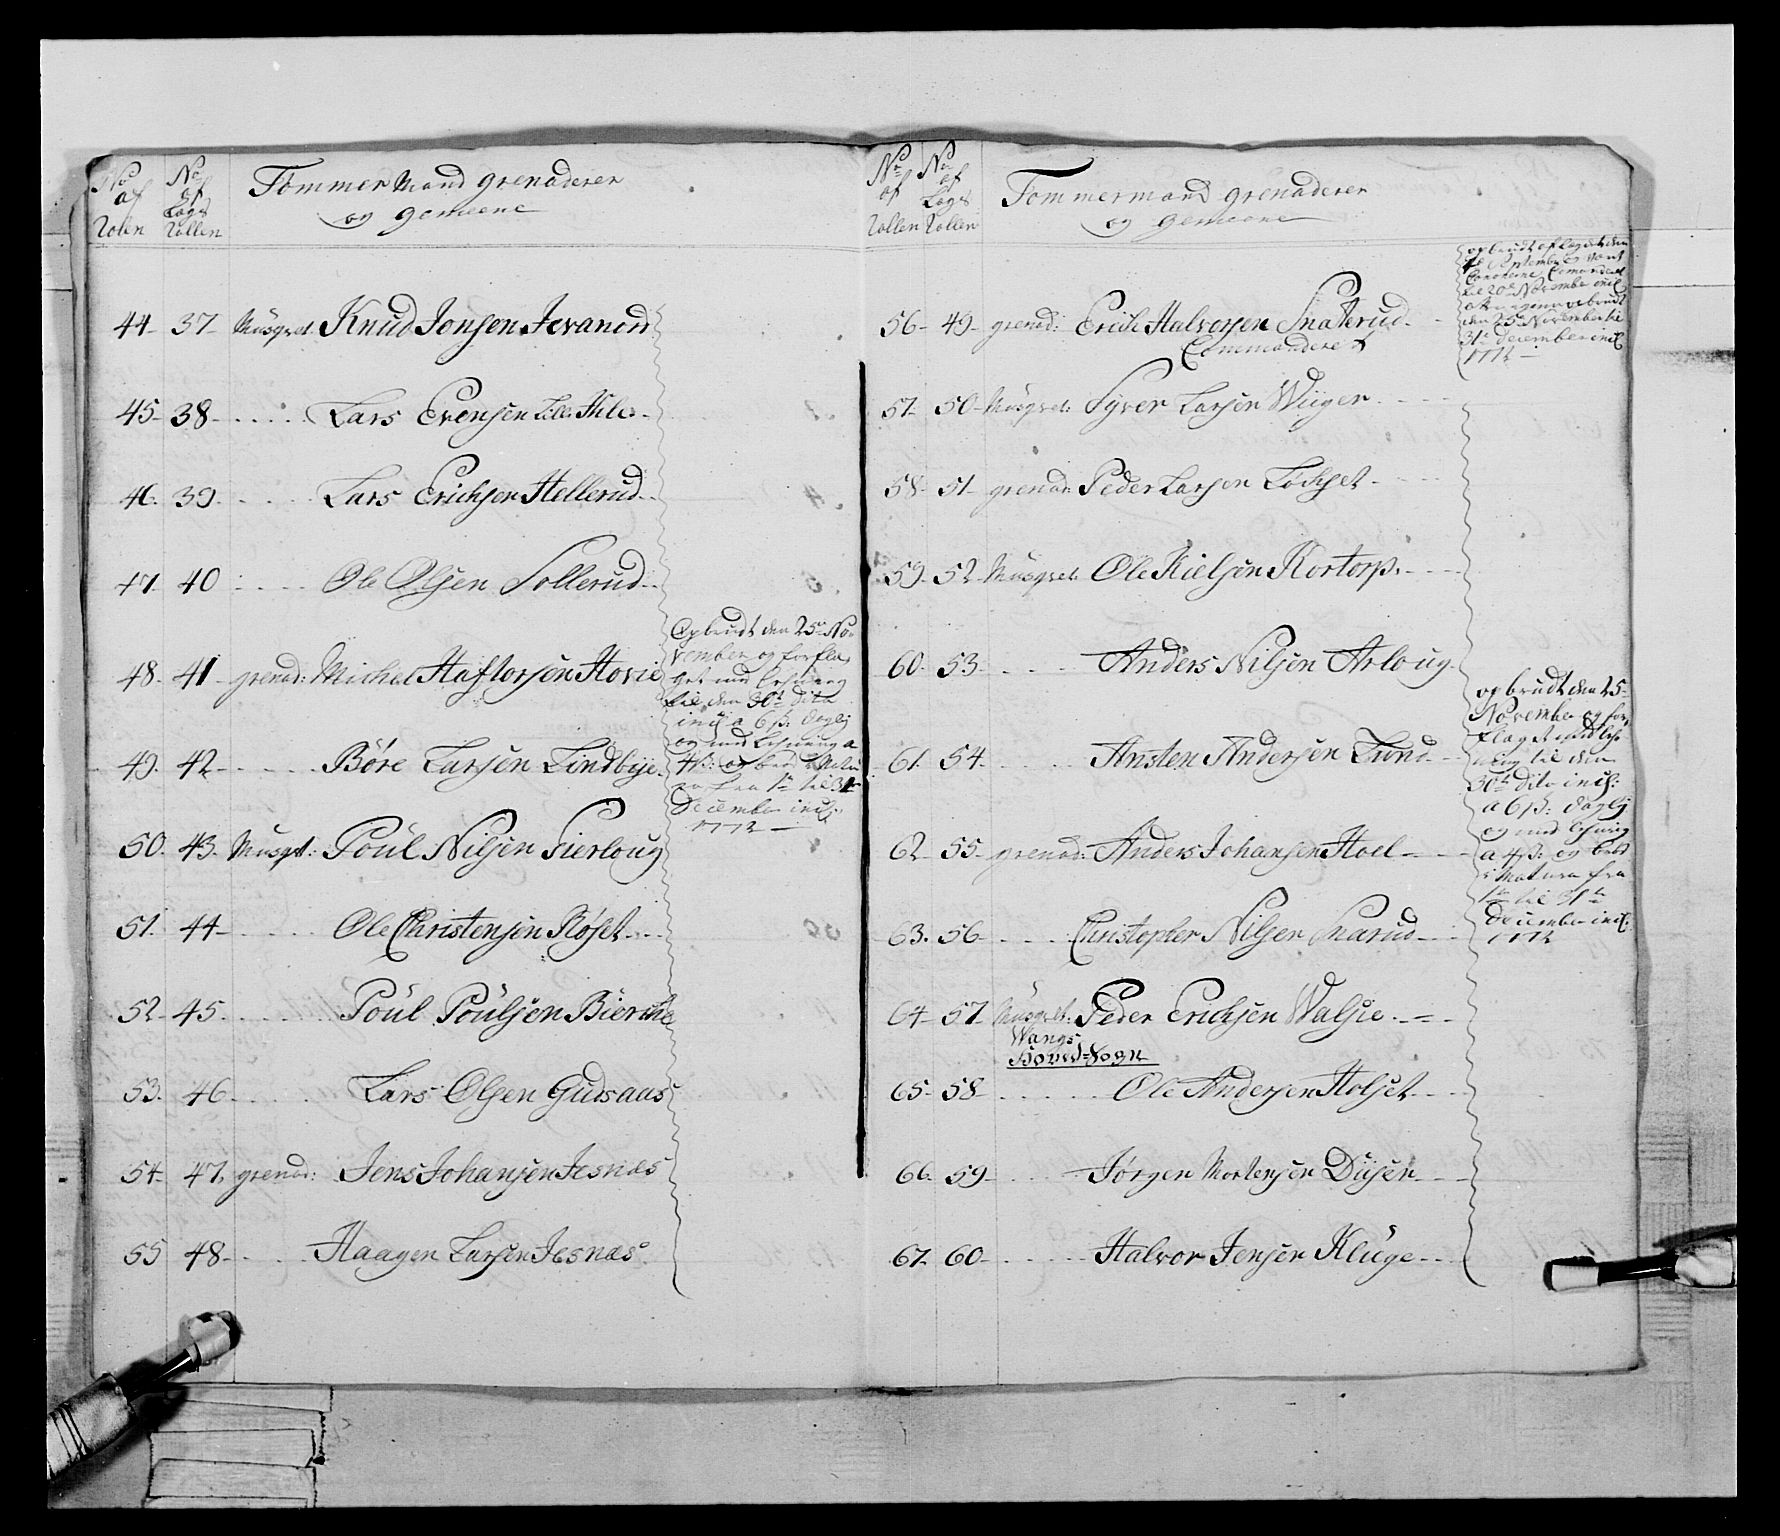 No af Rollen
No af Lægs Rollen
Tømmer Mand grenaderer
og gemeene
44 37 Musqvet: Knud Jonsen Jevanord
45 38 Lars Evensen Lille Ihle
46 39 Lars Erichsen Hellerud
47 40 Ole Olsen Sollerud
48 41 grenad: Michel Haftorsen Hovie
49 42 Børe Larsen Lindbye
Opbrudt den 25de No-
vember og forflæ-
get med Lehning
til den 30te dito
incl: a 6 ß: daglig
og med Lehning a
4 ß: og brød i Natu-
ra fra 1te til 31te
December incl:
1772
50 43 Musqvt: Poül Nilsen Fierloug
51 44 Ole Christensen Røset
52 45 Poül Poülsen Bierche
53 46 Lars Olsen Gudsaas
54 47 grenad: Jens Johansen Jesnæs
55 48 Haagen Larsen Jesnæs
No af Rollen
No af Lægs Rollen
Tømmermand grenaderer
og gemeene
56 49 grenad: Erich Halvorsen Snaterud
Commanderet
opbrudt af lægdet den
September
Comanderet
til 20de November incl:
igien opbrudt
den 25de November til
31te December incl:
1772
57 50 Musqvet: Syver Larsen Wiiger
58 51 grenad: Peder Larsen Løchset
59 52 Musqvet: Ole Kielsen Kortorp
60 53 Anders Nilsen Arloug
61 54 Ansten Andersen Lund
opbrudt den 25de
November og for-
flæget med Leh-
ning til den
30te dito incl:
a 6 ß: daglig
og med Lehning
a 4 ß: og brød
i Natura fra
1te til 31te
December incl:
1772
62 55 grenad: Anders Johansen Hoel
63 56 Christopher Nilsen Snarud
64 57 Musqvet: Peder Erichsen Walsie
Wangs
Hoved-Sogn
65 58 Ole Andersen Holset
66 59 Jørgen Mortensen Disen
67 60 Halvor Jensen Klüge